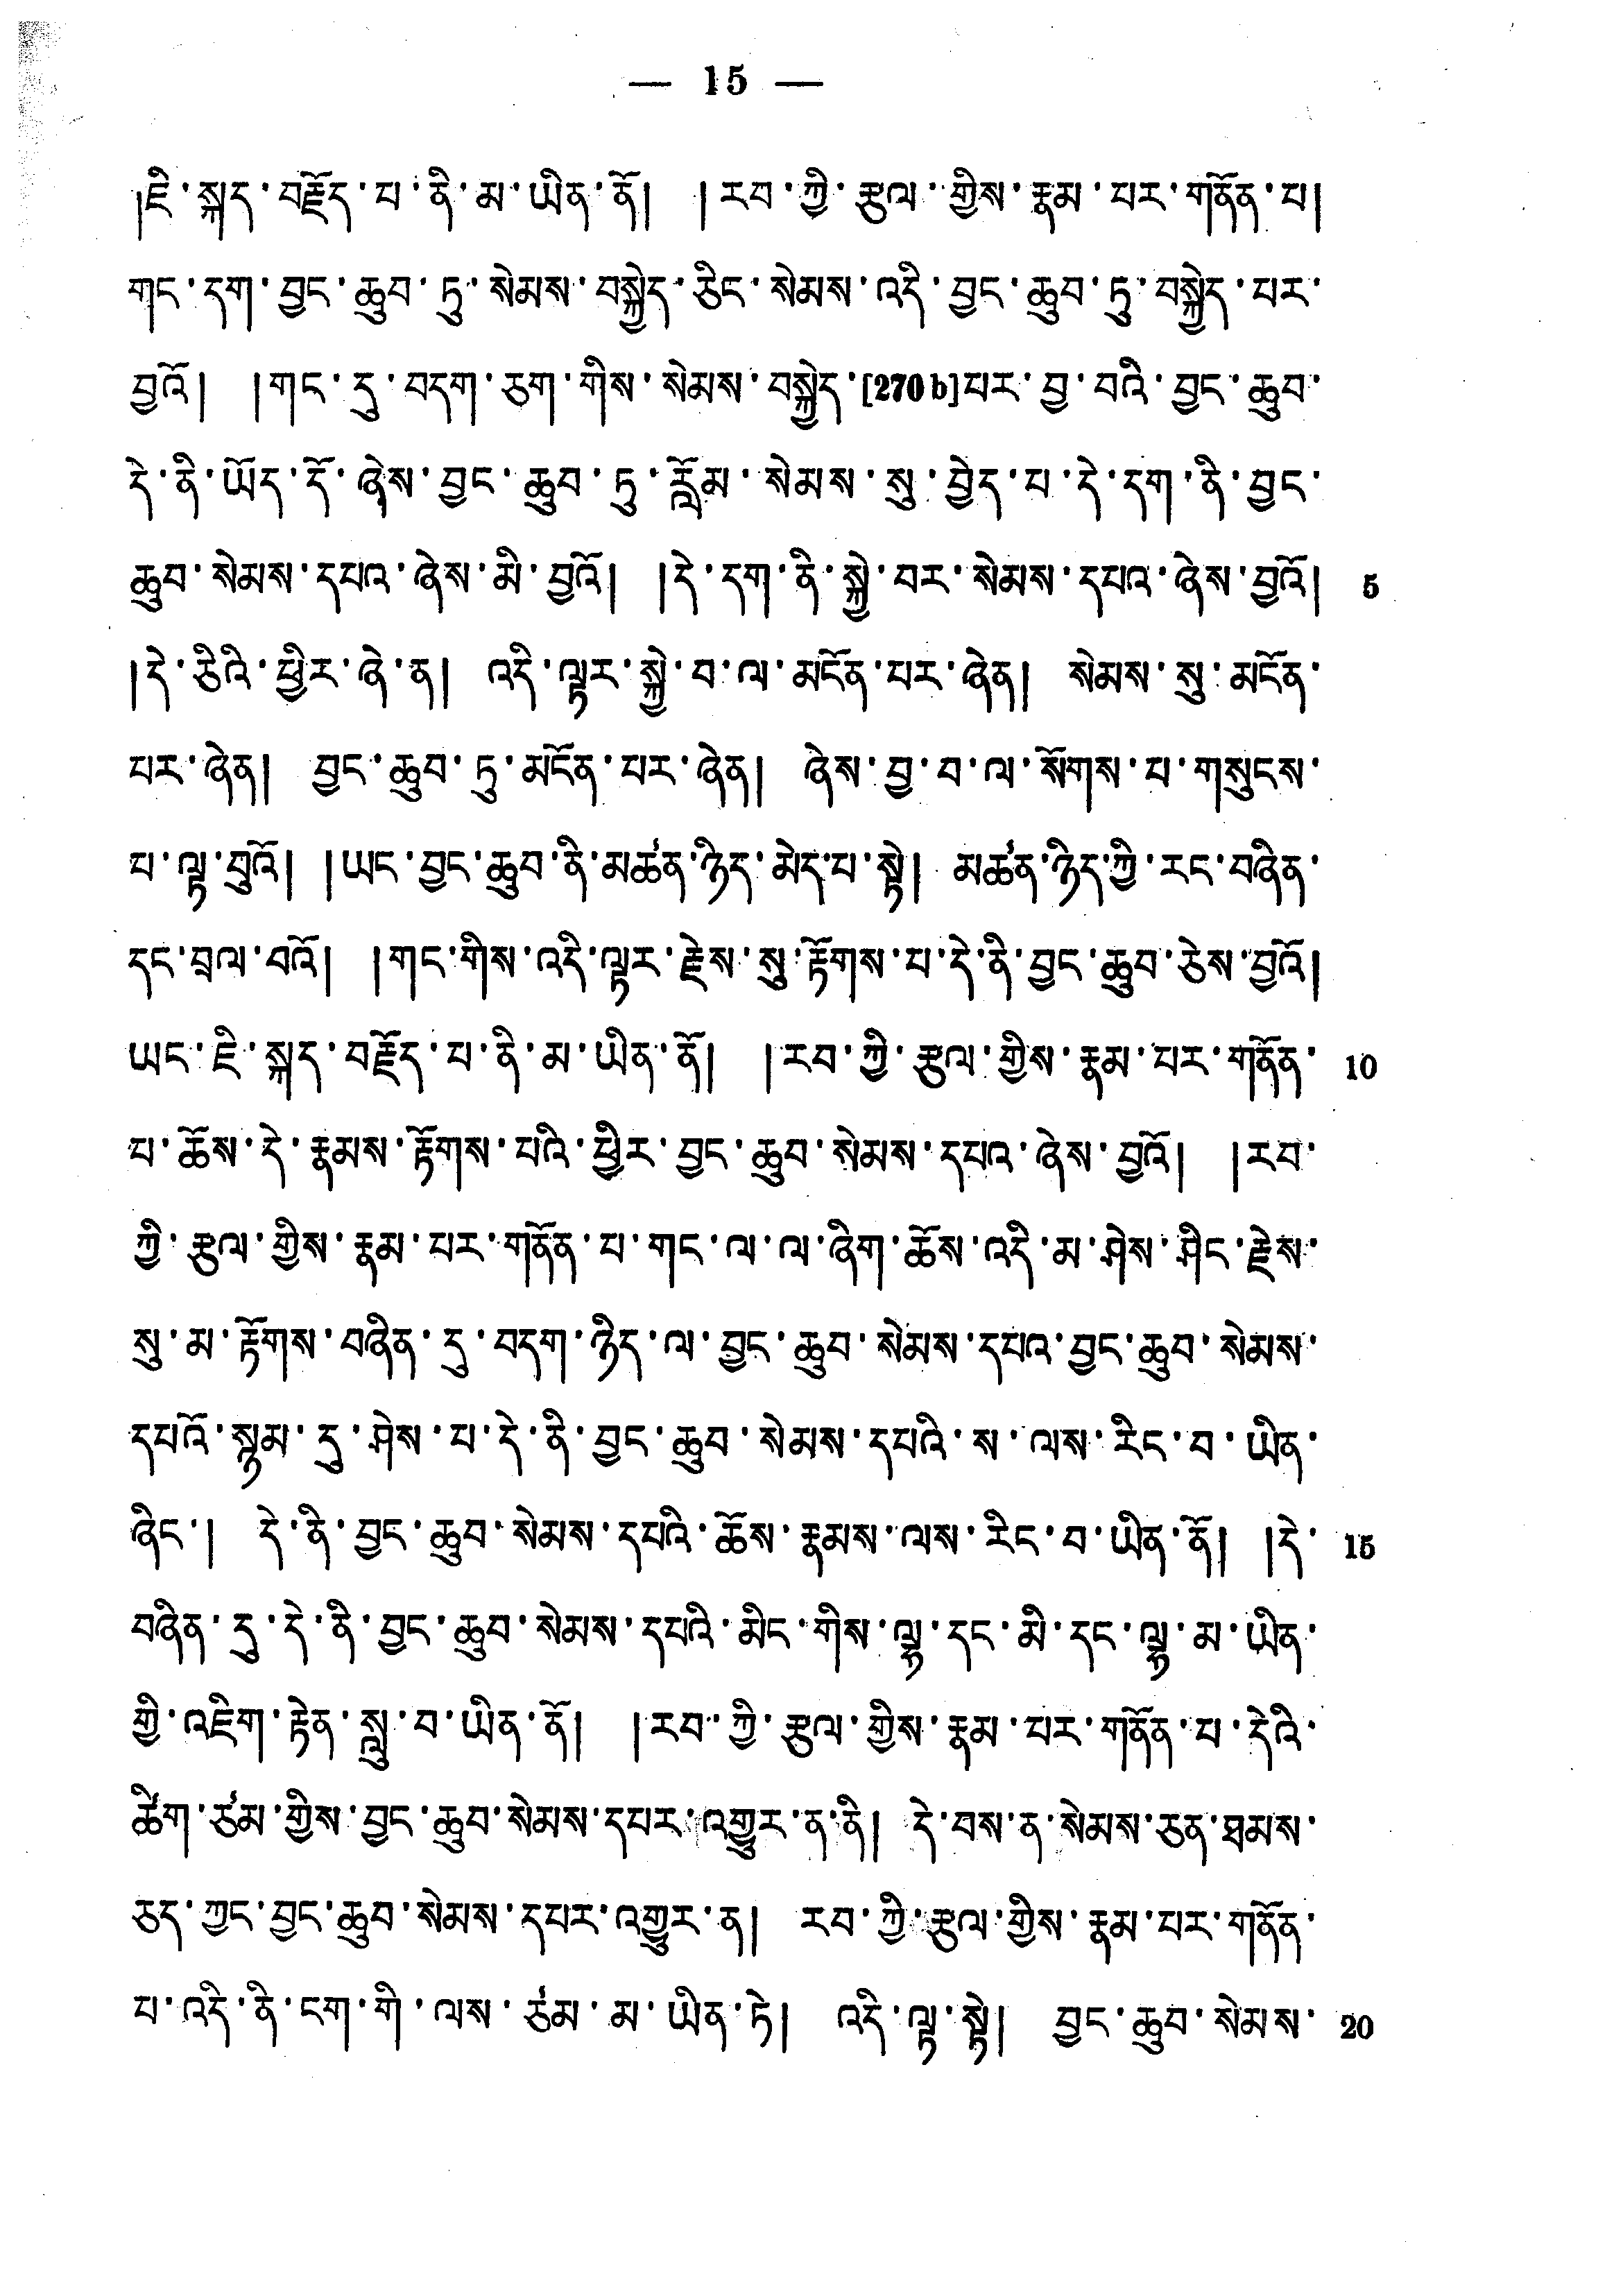 — 15 —
།ཇི་སྐད་བརྗོད་པ་ནི་མ་ཡིན་ནོ། །རབ་ཀྱི་རྩལ་གྱིས་རྣམ་པར་གནོན་པ།
གང་དག་བྱང་ཆུབ་ཏུ་སེམས་བསྐྱེད་ཅིང་སེམས་འདི་བྱང་ཆུབ་ཏུ་བསྐྱེད་པར་
བྱའོ། །གང་དུ་བདག་ཅག་གིས་སེམས་བསྐྱེད་[270b]པར་བྱ་བའི་བྱང་ཆུབ་
དེ་ནི་ཡོད་དོ་ཞེས་བྱང་ཆུབ་ཏུ་རློམ་སེམས་སུ་བྱེད་པ་དེ་དག་ནི་བྱང་
ཆུབ་སེམས་དཔའ་ཞེས་མི་བྱའོ། །དེ་དག་ནི་སྐྱེ་བར་སེམས་དཔའ་ཞེས་བྱའོ། 5
།དེ་ཅིའི་ཕྱིར་ཞེ་ན། འདི་ལྟར་སྐྱེ་བ་ལ་མངོན་པར་ཞེན། སེམས་སུ་མངོན་
པར་ཞེན། བྱང་ཆུབ་ཏུ་མངོན་པར་ཞེན། ཞེས་བྱ་བ་ལ་སོགས་པ་གསུངས་
པ་ལྟ་བུའོ། །ཡང་བྱང་ཆུབ་ནི་མཚན་ཉིད་མེད་པ་སྟེ། མཚན་ཉིད་ཀྱི་རང་བཞིན་
དང་བྲལ་བའོ། །གང་གིས་འདི་ལྟར་རྗེས་སུ་རྟོགས་པ་དེ་ནི་བྱང་ཆུབ་ཅེས་བྱའོ།
ཡང་ཇི་སྐད་བརྗོད་པ་ནི་མ་ཡིན་ནོ། །རབ་ཀྱི་རྩལ་གྱིས་རྣམ་པར་གནོན་ 10
པ་ཆོས་དེ་རྣམས་རྟོགས་པའི་ཕྱིར་བྱང་ཆུབ་སེམས་དཔའ་ཞེས་བྱའོ། །རབ་
ཀྱི་རྩལ་གྱིས་རྣམ་པར་གནོན་པ་གང་ལ་ལ་ཞིག་ཆོས་འདི་མ་ཤེས་ཤིང་རྗེས་
སུ་མ་རྟོགས་བཞིན་དུ་བདག་ཉིད་ལ་བྱང་ཆུབ་སེམས་དཔའ་བྱང་ཆུབ་སེམས་
དཔའོ་སྙམ་དུ་ཤེས་པ་དེ་ནི་བྱང་ཆུབ་སེམས་དཔའི་ས་ལས་རིང་བ་ཡིན་
ཞིང་། དེ་ནི་བྱང་ཆུབ་སེམས་དཔའི་ཆོས་རྣམས་ལས་རིང་བ་ཡིན་ནོ། །དེ་ 15
བཞིན་དུ་དེ་ནི་བྱང་ཆུབ་སེམས་དཔའི་མིང་གིས་ལྷ་དང་མི་དང་ལྷ་མ་ཡིན་
གྱི་འཇིག་རྟེན་སླུ་བ་ཡིན་ནོ། །རབ་ཀྱི་རྩལ་གྱིས་རྣམ་པར་གནོན་པ་དེའི་
ཚིག་ཙམ་གྱིས་བྱང་ཆུབ་སེམས་དཔར་འགྱུར་ན་ནི། དེ་བས་ན་སེམས་ཅན་ཐམས་
ཅད་ཀྱང་བྱང་ཆུབ་སེམས་དཔར་འགྱུར་ན། རབ་ཀྱི་རྩལ་གྱིས་རྣམ་པར་གནོན་
པ་འདི་ནི་ངག་གི་ལས་ཙམ་མ་ཡིན་ཏེ། འདི་ལྟ་སྟེ། བྱང་ཆུབ་སེམས་ 20